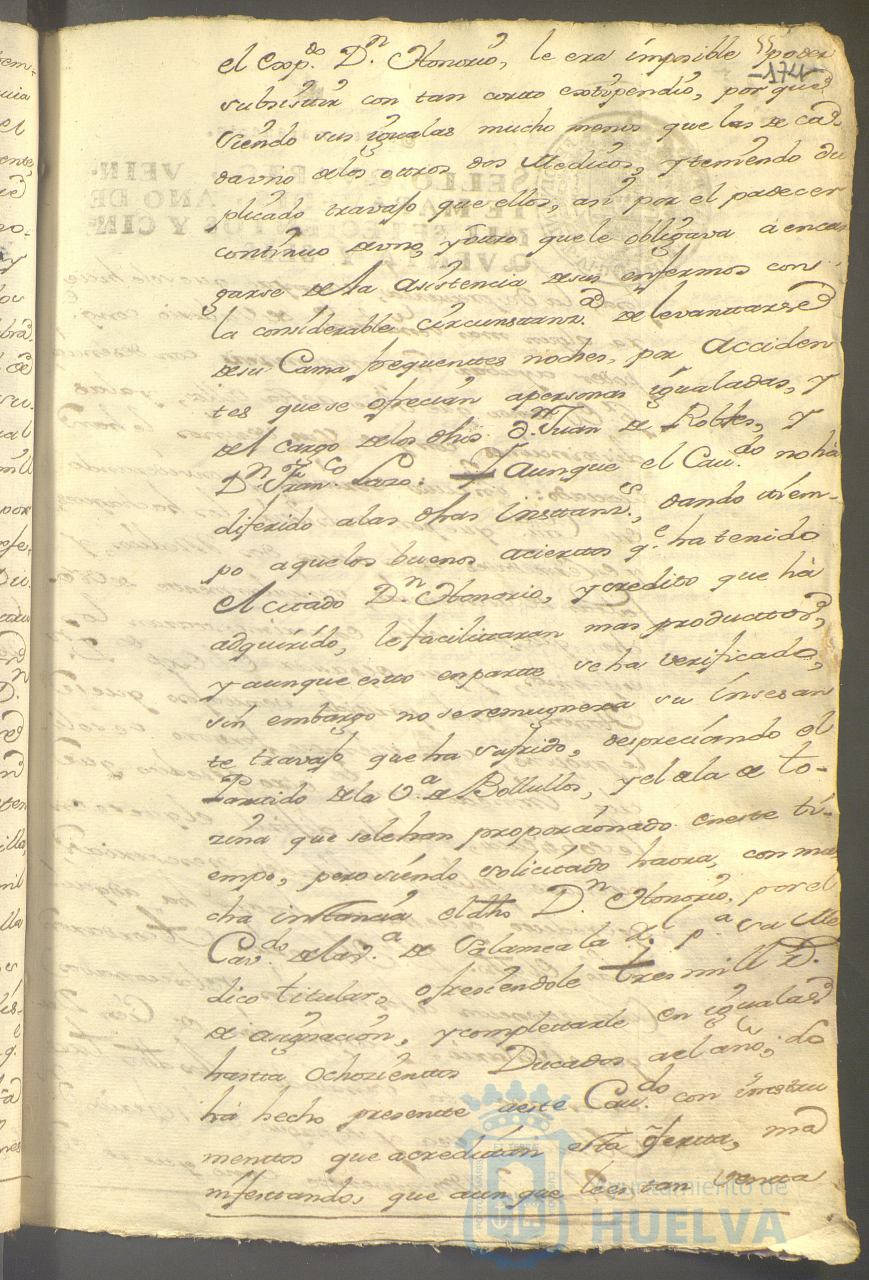 -174-
el Exp.do D.n Honorio, le era impsible poder
subsistir con tan corto extipendio, por que
siendo sus igualas mucho menos que las de ca
da vno de los otros dos Medicos, y teniendo du
plicado travajo que ellos, asi por el padecer
continuo de vno, y otro que le obligava á encar
garse de la asistencia de sus enfermos con
la considerable circunstanz.a de levanttarse
de su Cama frequentes noches, por acciden
tes que se ofrecian a personas igualadas, y
del cargo de los dhos D.n Juan de Robles, y
D.n Fran.co Lazo: Aunque el Cav.do no há
diferido a las dhas instanz.s, dando tiem-
po a que los buenos aciertos q.e ha tenido
el citado D.n Honorio, y credito que há
adquirido, le facilittaran mas productos,
y aunque esto en partte se ha verificado,
sin embargo no se remugnera su insesan
te travajo que ha sufrido, despreciando el
Partido de la V.a de Bollullos, y el de la de
zina que se le han proporcionado en este ti-
empo, pero siendo solicitado haora, con mu
cha instancia el dho D.n Honorio, por el
Cav.do de la v.a de Valamea la R. p.a su Me
dico titular, ofreciendole tres mill R.
de asignación, y complettarle en igualas
hasta ochozientos Ducados a el año; lo
há hecho presente a este Cav.do con instru
menttos que acreditan esta oferta, ma
nifestando, que aunque le es tan
Ayuntamiento de
HUELVA